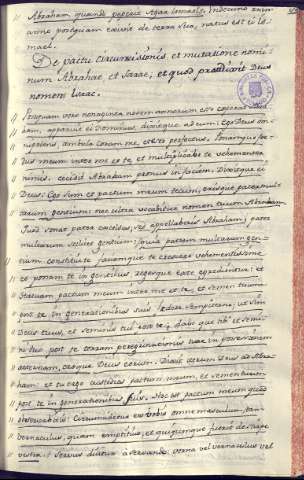 Abraham quando peperit Agar Ismaelis. Undecimo enim
anno postquam exivit de terra sua, natus est Is-
mael.
De pactu circumcissionis et mutatione nomi-
num Abrahae et Sarae, et quod praedixit Deus
nomen Isaac.
Postquam vero nonaginta novem annorum esse coeperat
Abram, apparuit ei Dominus, dixitque ad eum: Ego Deus om-
nipotens, ambula coram me, et esto perfectus. Ponamque foe-
dus meum inter me et te, et multiplicabo te vehementer
nimis. cecidit Abraham pronus in faciem. Dixitque ei
Deus: Ego sum et pactum meum tecum, erisque pater mul-
tarum gentium: nec ultra vocabitur nomen tuum Abram
sed appellaberis Abraham; pater
multarum gentium: quia patrem multarum gen-
tium constitui te faciamque te crescere vehementissime
et ponam te in gentibus regesque ex te egredientur: et
statuam pactum meum inter me et te, et semen tuum
post te in generationibus suis foedere sempiterno, ut sim
Deus tuus, et seminis tui post te, daboque tibi et semi-
ni tuo post te terram peregrinationis tuae in possessionem
aeternam, eroque Deus eorum. Dixit iterum Deus ad Abra-
ham: et tu ergo custodies pactum meum, et semen tuum
post te in generationibus suis. Hoc est pactum meum quod
observabitis: Circumcidetur ex vobis omne masculinum, tam
vernaculus, quam emptitius, et quicumque fuerit de stirpe
vestra: servus dicitur a servando. verna vel vernaculus vel